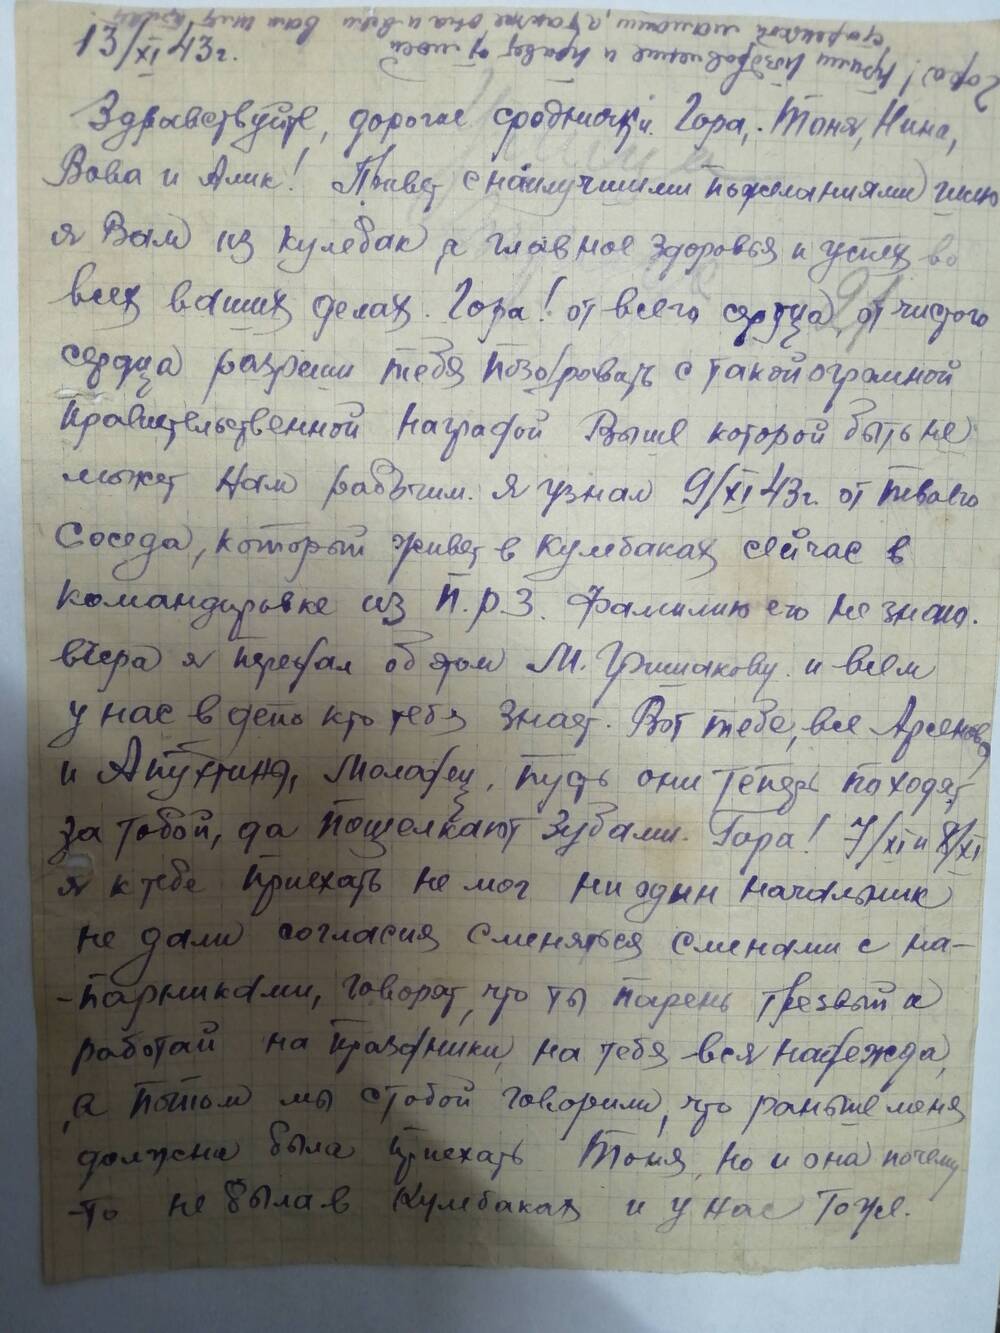 Гора! Прими поздравление и привет от моей
старенькой мамаши, а также она и всем вам шлет привет
13/XI 43г.
Здравствуйте, дорогие сроднички Гора, Тоня, Нина,
Вова и Алик! Привет с наилучшими пожеланиями шлю
я Вам из Кулебак, а главное здоровья и успех во
всех ваших делах. Гора! от всего сердца, от чистого
сердца разреши тебя поздровать с такой огромной
правительственной наградой Выше которой быть не
может нам рабочим. я узнал 9/XI 43г. от твоего
Соседа, который живет в Кулебаках сейчас в
командировке из П.р.З. Фамилию его не знаю.
вчера я передал об этом М. Гришакову. и всем
у нас в депо кто тебя знает. Вот тебе, все Арсенова
и Апухтина, Молодец, пусть они теперь походят
за тобой, да пощелкают Зубами. Гора! 7/XI и 8/XI
я к тебе приехать не мог ни один начальник
не дали согласия сменяться сменами с на-
-парниками, говорят, что ты парень трезвый и
работай на праздники, на тебя вся надежда,
а потом мы с тобой говорили, что раньше меня
должна была приехать Тоня, но и она почему
-то не была в Кулебаках и у нас тоже.